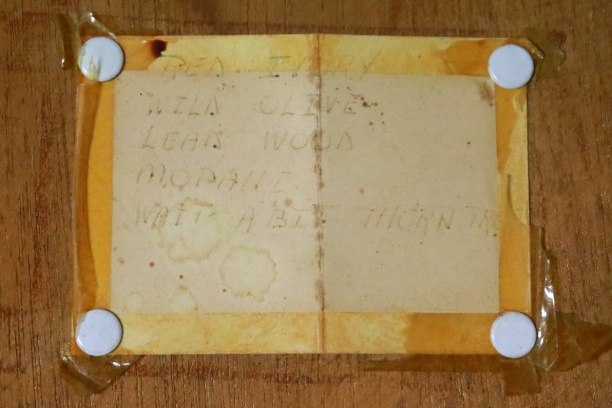 RED IVORY
WILD OLIVE
LEAD WOOD
MOPANI
WAIT A BIT THORN